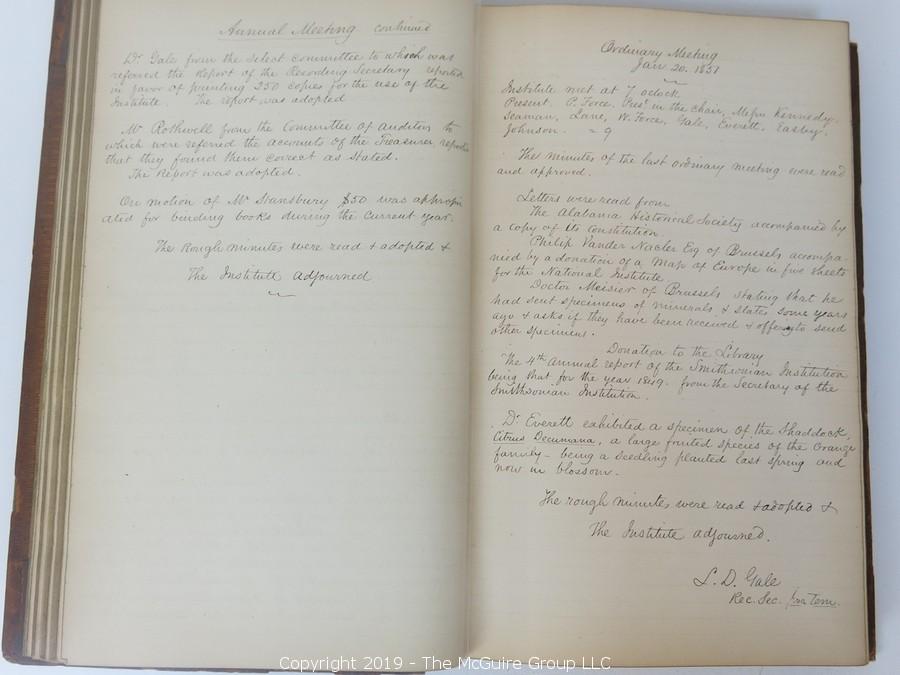 Annual Meeting continued
Dr Gale from the Select committee to which was
referred the Report of the Recording Secretary reported
in favor of printing 250 copies for the use of the
Institute. The report was adopted
Mr Rothwell from the Committee of Auditors to
which were referred the accounts of the Treasurer, reported
that they found them correct as stated.
The Report was adopted.
On motion of Mr Stansbury $50 was appropri
ated for binding books during the current year.
The Rough minutes were read & adopted &
The Institute adjourned
Ordinary Meeting
Jan 20. 1851
Institute met at 7 oclock
Present. P. Force. Prest in the chair, Messrs Kennedy.
Seaman, Lane, W. Force, Gale, Everett. Easby.
Johnson. = 9
The minutes of the last ordinary meeting were read
and approved.
Letters were read from
The Alabama Historical Society accompanied by
a copy of its Constitution.
Philip Vander Maelen Esq of Brussels accompa-
nied by a donation of a Map of Europe in five sheets
for the National Institute
Doctor Meisier of Brussels stating that he
had sent specimens of minerals & slates some years
ago & asks if they have been received & offering to send
other specimens.
Donation to the Library
The 4th annual report of the Smithsonian Institution
being that for the year 1849. from the Secretary of the
Smithsonian Institution.
Dr Everett exhibited a specimen of the Shaddock,
Citrus Decumana, a large fruited species of the Orange
family - being a seedling planted last spring and
now in blossom.
The rough minutes were read & adopted &
The Institute adjourned.
L. D. Gale
Rec. Sec. pro Tem.
Copyright 2019 - The McGuire Group LLC